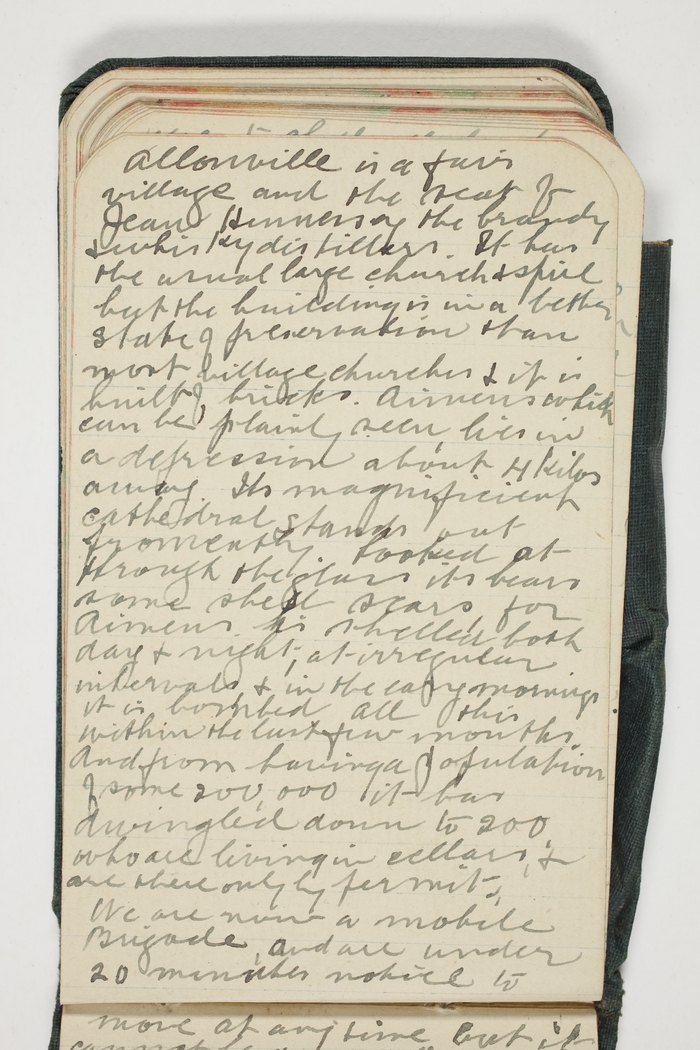 Allonville is a fair
village and the seat of
Jean Hennessy the brandy
& whisky distillers. It has
the usual large church & spire
but the building is in a better
state of preservation than
most village churches & it is
built of bricks. Aimens which
can be plainly seen, lies in
a depression about 4 kilos
away. Its magnificient
cathedral stands out
prominently. Looked at
through the glass its bears
some shell scars, for
Aimens is shelled both
day & night, at irregular
intervals & in the early mornings
it is bombed all this
within the last few months
and from having a population
of some 200,000 it has
dwingled down to 200
who are living in cellars, &
are there only by permit.
We are now a mobile
Brigade, and are under
20 minutes notice to
move at any time but it